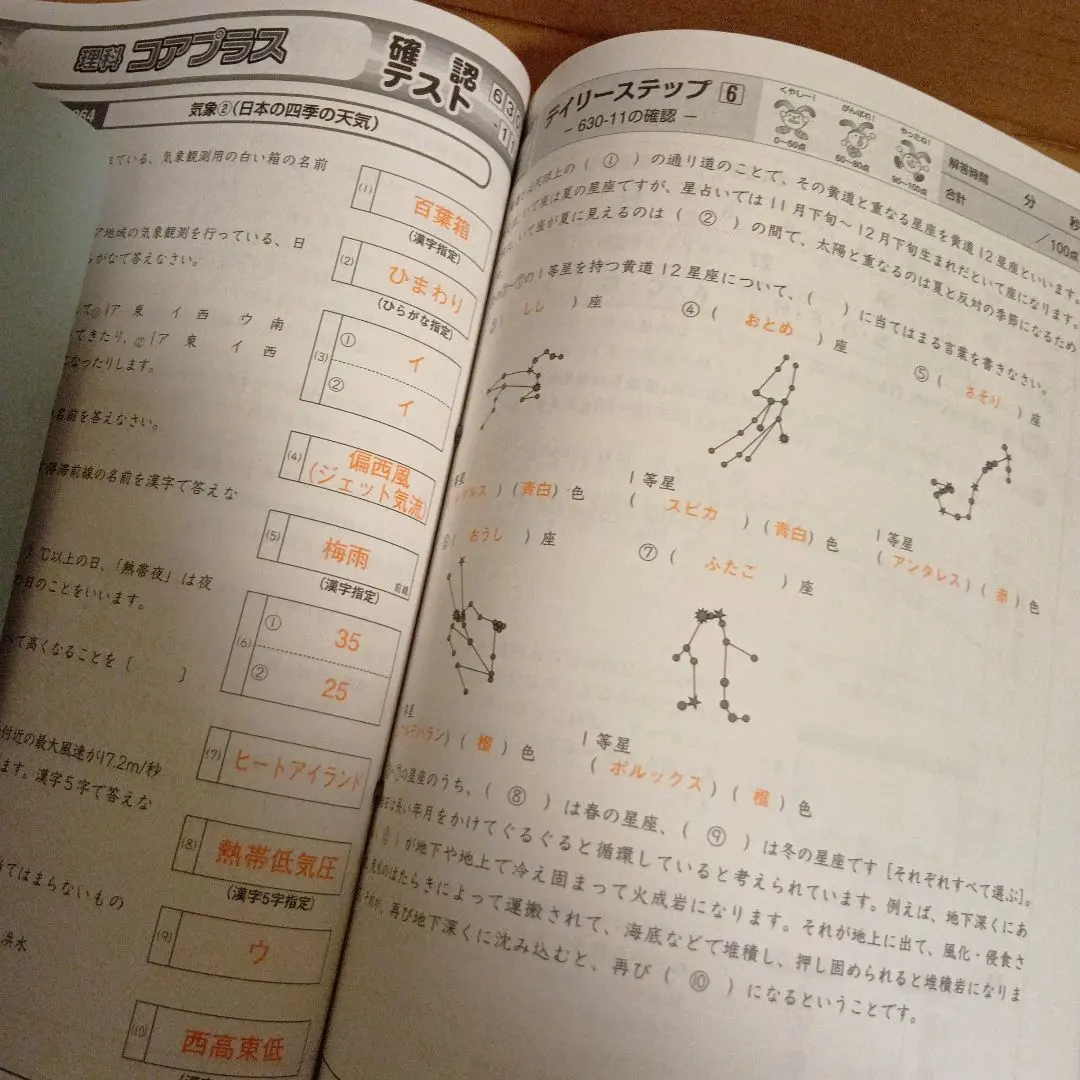 理科 コアプラス
確認テスト
630-11
364
気象②(日本の四季の天気)
ている、気象観測用の白い箱の名前
(1) 百葉箱
(漢字指定)
ア地域の気象観測を行っている、日
がなで答えなさい。
(2) ひまわり
(ひらがな指定)
て①ア 東 イ 西 ウ 南
てきたり、②ア 東 イ 西
になったりします。
(3) ① イ
② イ
名前を答えなさい。
(4) 偏西風
(ジェット気流)
停滞前線の名前を漢字で答えな
(5) 梅雨
前線
(漢字指定)
℃以上の日、「熱帯夜」は夜
の日のことをいいます。
(6) ① 35
② 25
べて高くなることを [ ]
(7) ヒートアイランド
付近の最大風速が17.2m/秒
ます。漢字5字で答えな
(8) 熱帯低気圧
(漢字5字指定)
当てはまらないもの
(9) ウ
洪水
(10) 西高東低
デイリーステップ 6
- 630-11の確認 -
くやしー!
0~50点
がんばれ!
60~80点
やったね!
90~100点
解答時間 分 秒
合計 /100点
天球上の ( ① ) の通り道のことで、その黄道と重なる星座を黄道12星座といいます。
いて座は夏の星座ですが、星占いでは11月下旬~12月下旬生まれだといて座になります。
いて座が夏に見えるのは ( ② ) の間で、太陽と重なるのは夏と反対の季節になるため
⑦の1等星を持つ黄道12星座について、( ) に当てはまる言葉を書きなさい。
しし ) 座
④ ( おとめ ) 座
⑤ ( さそり ) 座
等星
ルス ) ( 青白 ) 色
1等星
( スピカ ) ( 青白 ) 色
1等星
( アンタレス ) ( 赤 ) 色
おうし ) 座
⑦ ( ふたご ) 座
等星
ルデバラン ) ( 橙 ) 色
1等星
( ポルックス ) ( 橙 ) 色
⑦の星座のうち、( ⑧ ) は春の星座、( ⑨ ) は冬の星座です [それぞれすべて選ぶ]。
は長い年月をかけてぐるぐると循環していると考えられています。例えば、地下深くにあ
( ⑩ ) が地下や地上で冷え固まって火成岩になります。それが地上に出て、風化・侵食さ
のはたらきによって運搬されて、海底などで堆積し、押し固められると堆積岩になりま
再び地下深くに沈み込むと、再び ( ⑩ ) になるということです。